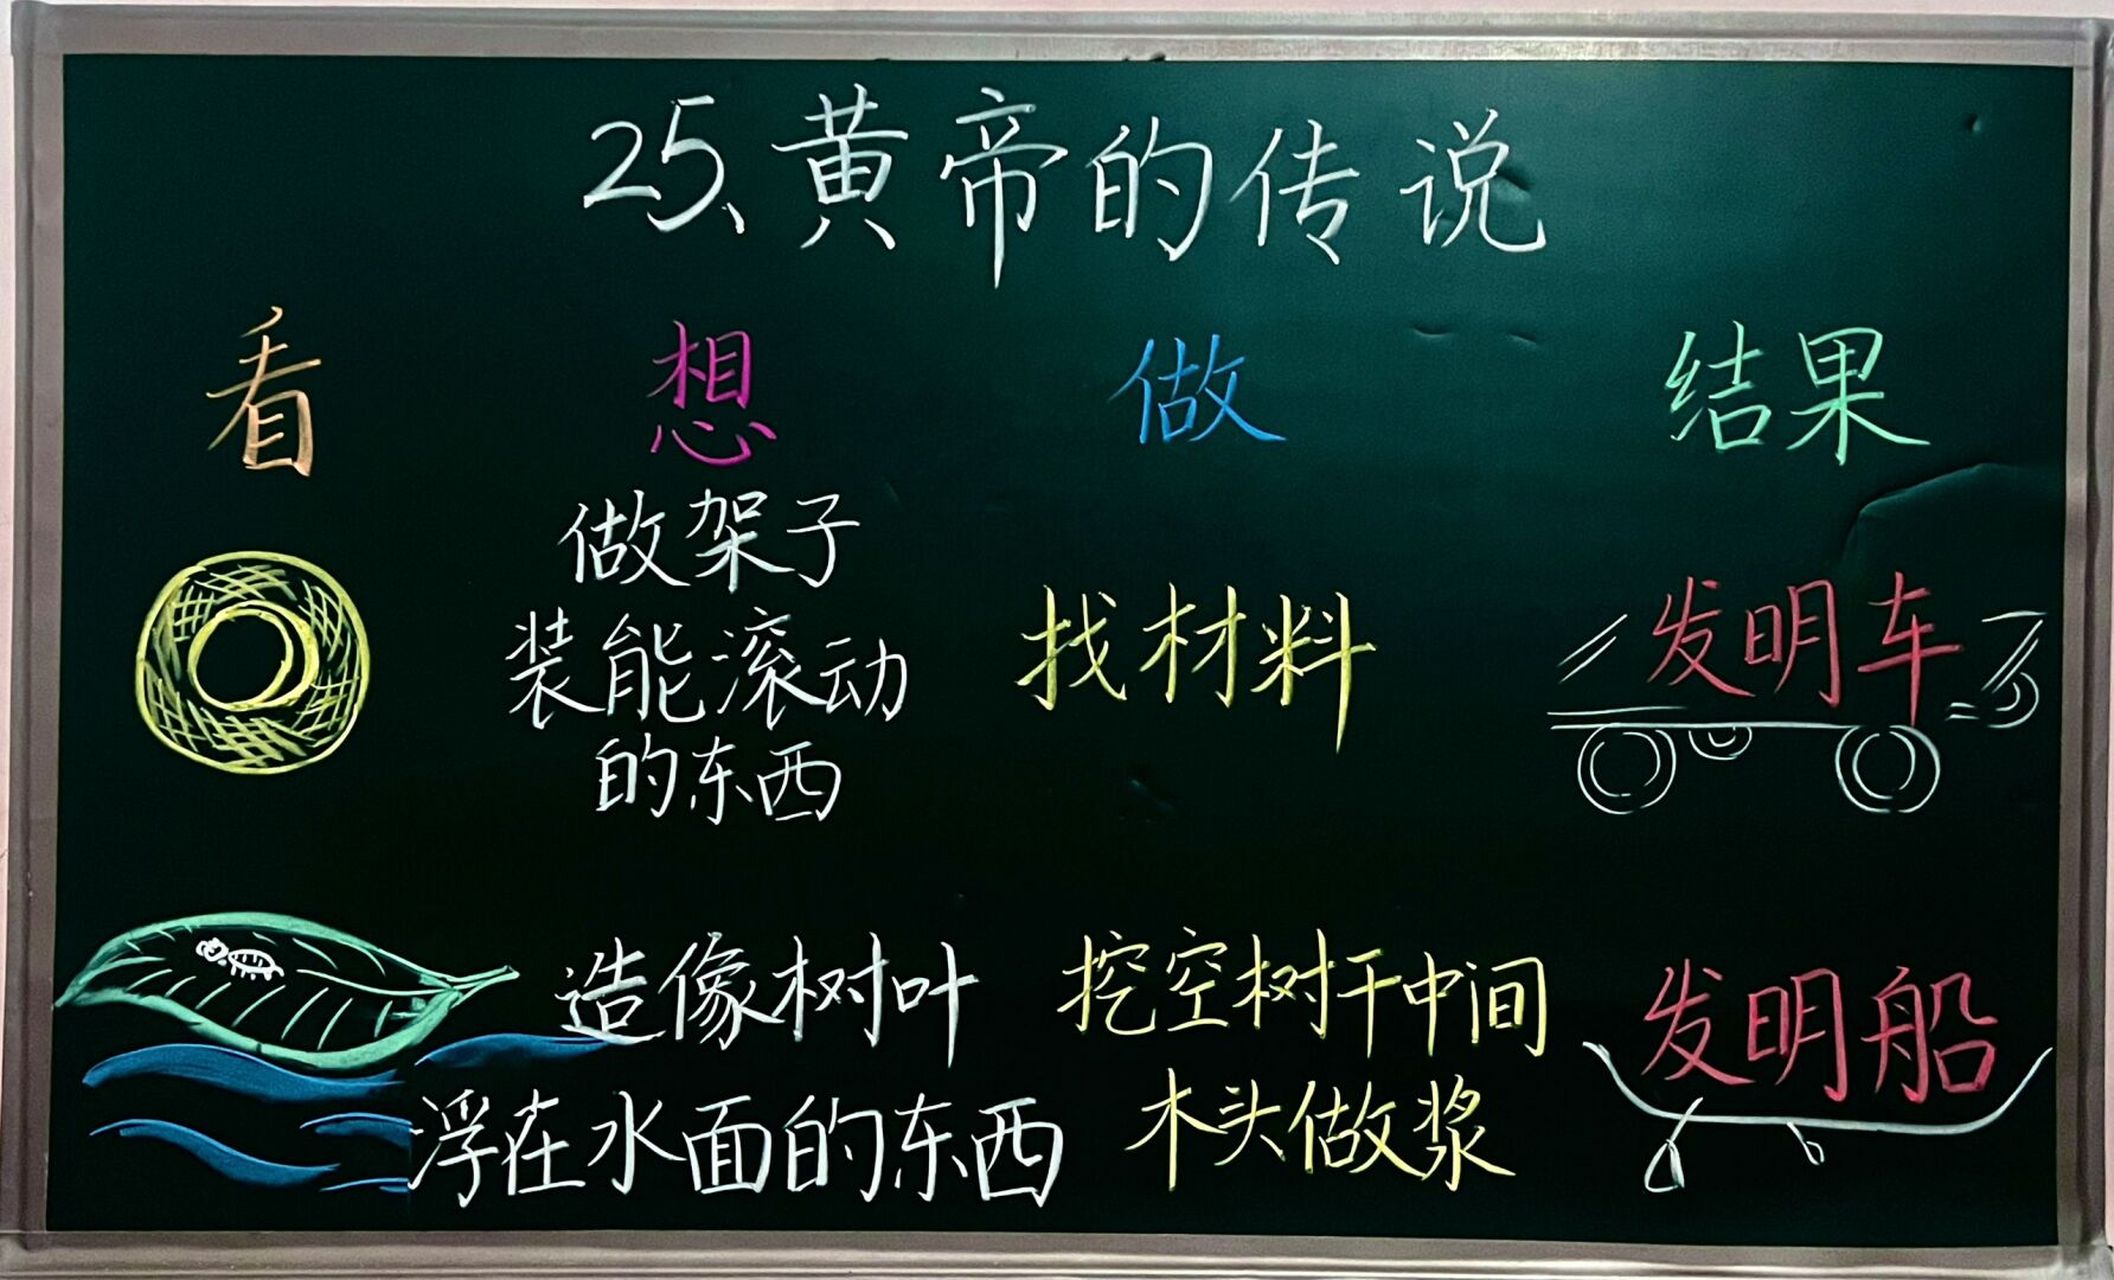 25、黄帝的传说
看 想 做 结果
做架子
装能滚动
的东西
找材料
发明车
造像树叶
浮在水面的东西
挖空树干中间
木头做浆
发明船